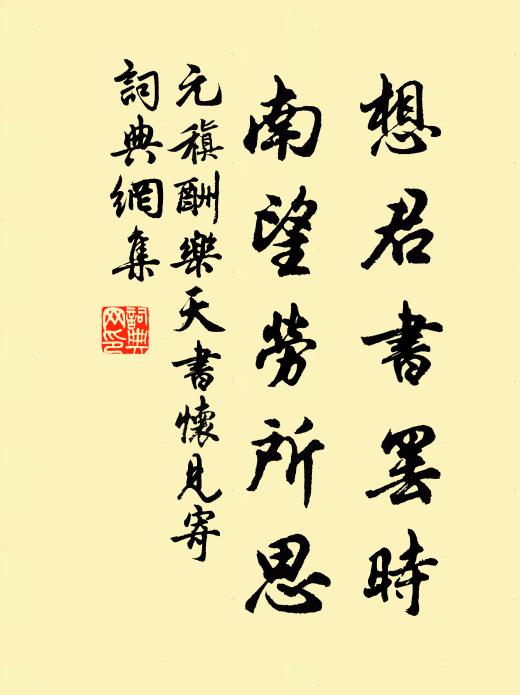 想君書罢時
南望勞所思
元稹酬樂天書懷見寄
詞典網集
詞典网印